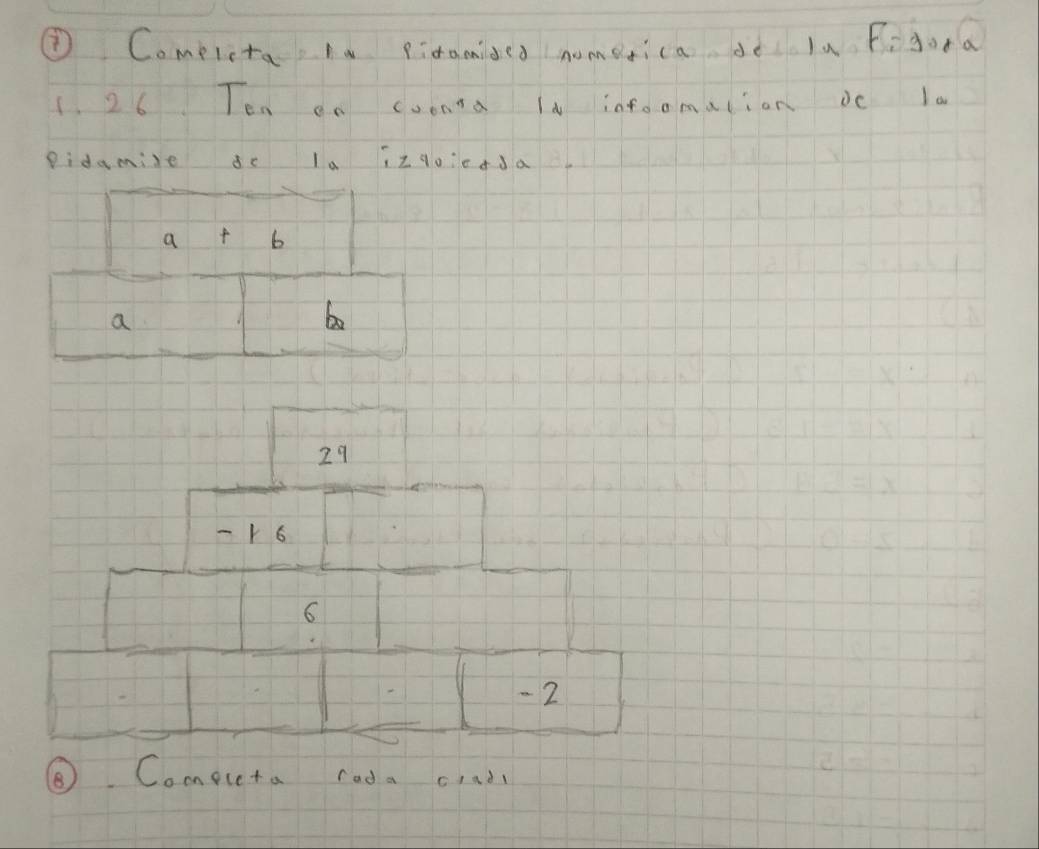 7 Completa la pirámides numerica de la Figura
1.26. Ten en cuenta la informacion de la
piramise de la izquierda.
a + b
a b
29
-16
6
-2
8. Completa cada cuadr